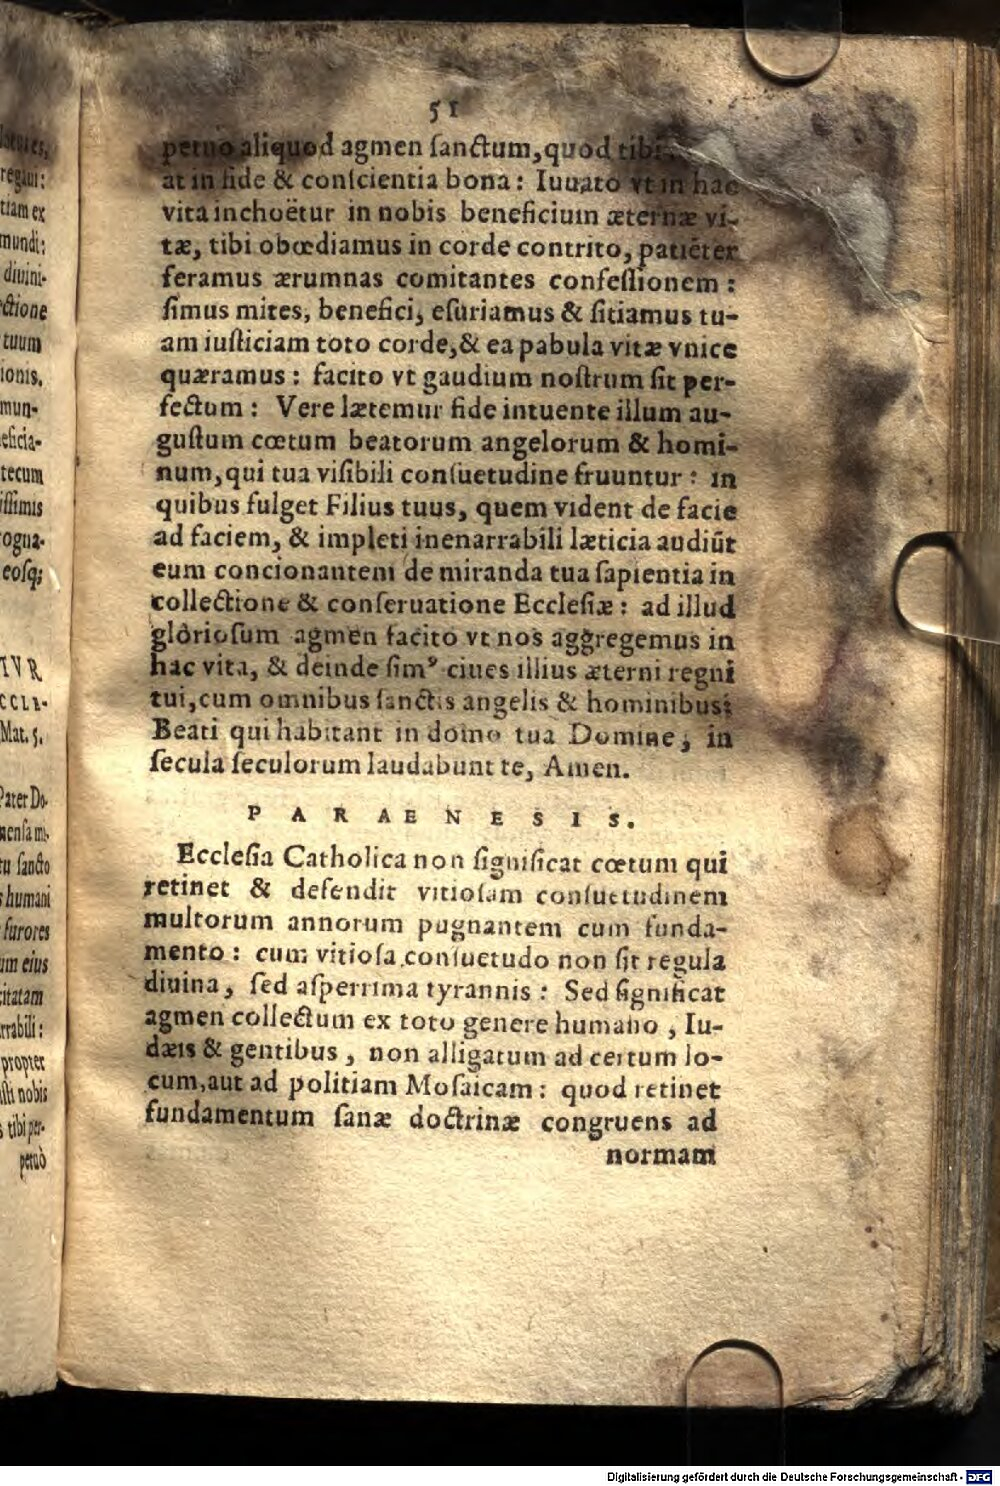 51
petuo aliquod agmen ſanctum, quod tibi
at in fide & conſcientia bona: Iuuato vt in hac
vita inchoëtur in nobis beneficium æternæ vi-
tæ, tibi obœdiamus in corde contrito, patiēter
feramus ærumnas comitantes confeſſionem:
ſimus mites, benefici, eſuriamus & ſitiamus tu-
am iuſticiam toto corde, & ea pabula vitæ vnice
quæramus: facito vt gaudium noſtrum ſit per-
fectum: Vere lætemur fide intuente illum au-
guſtum cœtum beatorum angelorum & homi-
num, qui tua viſibili conſuetudine fruuntur: in
quibus fulget Filius tuus, quem vident de facie
ad faciem, & impleti inenarrabili læticia audiūt
eum concionantem de miranda tua ſapientia in
collectione & conſeruatione Eccleſiæ: ad illud
glorioſum agmen facito vt nos aggregemus in
hac vita, & deinde ſimꝰ ciues illius æterni regni
tui, cum omnibus ſanctis angelis & hominibus:
Beati qui habitant in domo tua Domine, in
ſecula ſeculorum laudabunt te, Amen.
PARAENESIS.
Eccleſia Catholica non ſignificat cœtum qui
retinet & defendit vitioſam conſuetudinem
multorum annorum pugnantem cum funda-
mento: cum vitioſa conſuetudo non ſit regula
diuina, ſed aſperrima tyrannis: Sed ſignificat
agmen collectum ex toto genere humano, Iu-
dæis & gentibus, non alligatum ad certum lo-
cum, aut ad politiam Moſaicam: quod retinet
fundamentum ſanæ doctrinæ congruens ad
normam
regaui:
tiam ex
mundi:
diuini-
ctione
tuum
ionis,
mun-
eficia-
tecum
iſſimis
ogua-
eoſq;
TVR
CCLI-
Mat. 5.
Pater Do-
menſa mi-
tu ſancto
s humani
furores
um eius
citatam
rrabili:
propter
ſti nobis
s tibi per-
petuò
Digitalisierung gefördert durch die Deutsche Forschungsgemeinschaft - DFG